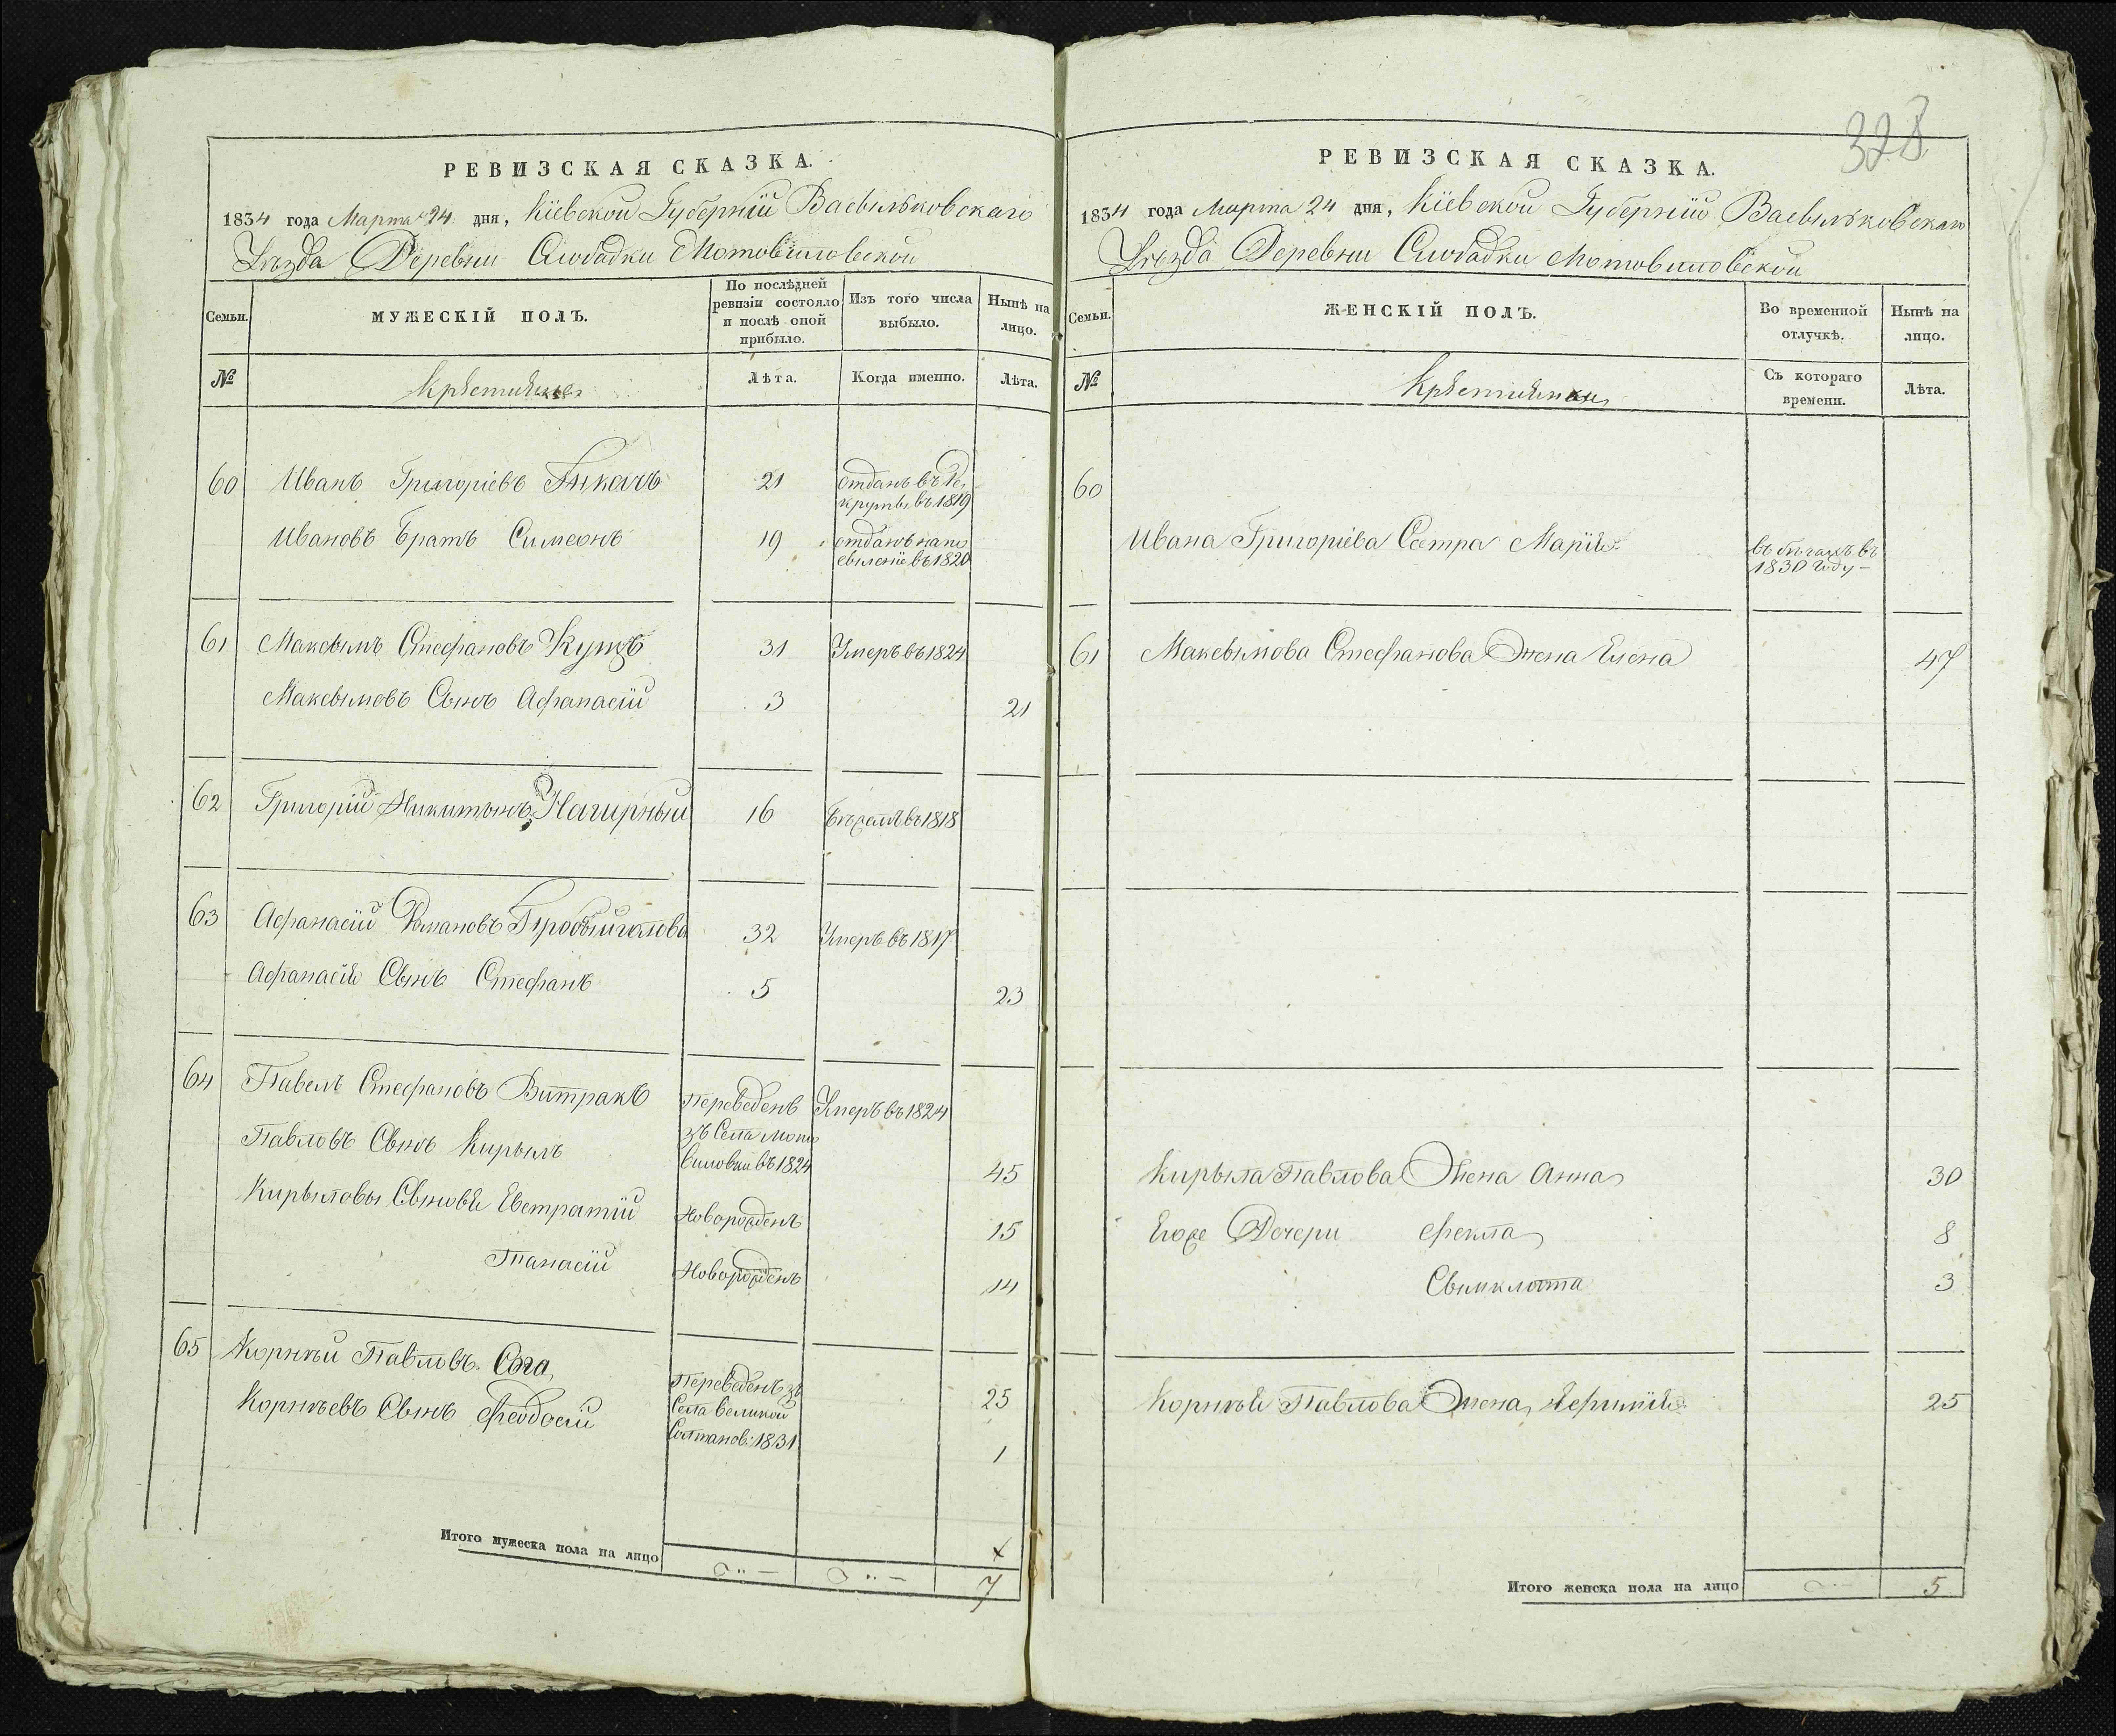 РЕВИЗСКАЯ СКАЗКА.
1834 года Марта 24 дня, Кіевской Губерніи Васильковскаго
Уѣзда Деревни Слободки Мотовиловской
Семьи.
МУЖЕСКІЙ ПОЛЪ.
По послѣдней ревизіи состояло и послѣ оной прибыло.
Изъ того числа выбыло.
Нынѣ на лицо.
№
Крестьяне
Лѣта.
Когда именно.
Лѣта.
60 Иванъ Григоріевъ Ткачъ 21 отданъ въ Рекруты въ 1819
Ивановъ Братъ Симеонъ 19 отданъ на по
селеніе въ 1820
61 Максымъ Стефановъ 31 Умеръ въ 1824
Максымовъ Сынъ Афанасій 3 21
62 Григорій Никитынъ Нагирный 16 Бѣжалъ въ 1818
63 Афанасій Романовъ 32 Умеръ въ 1817
Афанасія Сынъ Стефанъ 5 23
64 Павелъ Стефановъ Витракъ Переведенъ Умеръ въ 1824
зъ Села Мото
Павловъ Сынъ Кирылъ виловки въ 1824 45
Кирыловы Сыновья Евстратій Новорожденъ 15
Панасій Новорожденъ 14
65 Корнѣй Павловъ Переведенъ зъ 25
Села Великой
Корнѣевъ Сынъ Феодосій Солтанов: 1831 1
Итого мужеска пола на лицо
7
328
РЕВИЗСКАЯ СКАЗКА.
1834 года Марта 24 дня, Кіевской Губерніи Васильковскаго
Уѣзда Деревни Слободки Мотовиловской
Семьи.
ЖЕНСКІЙ ПОЛЪ.
Во временной отлучкѣ.
Нынѣ на лицо.
№
Крестьянки
Съ котораго времени.
Лѣта.
60
Ивана Григоріева Сестра Марія въ бѣгахъ въ
1830 году
61 Максымова Стефанова Жена Елена 47
Кирыла Павлова Жена Анна 30
Егоже Дочери Фекла 8
3
Корнѣя Павлова Жена 25
Итого женска пола на лицо
5